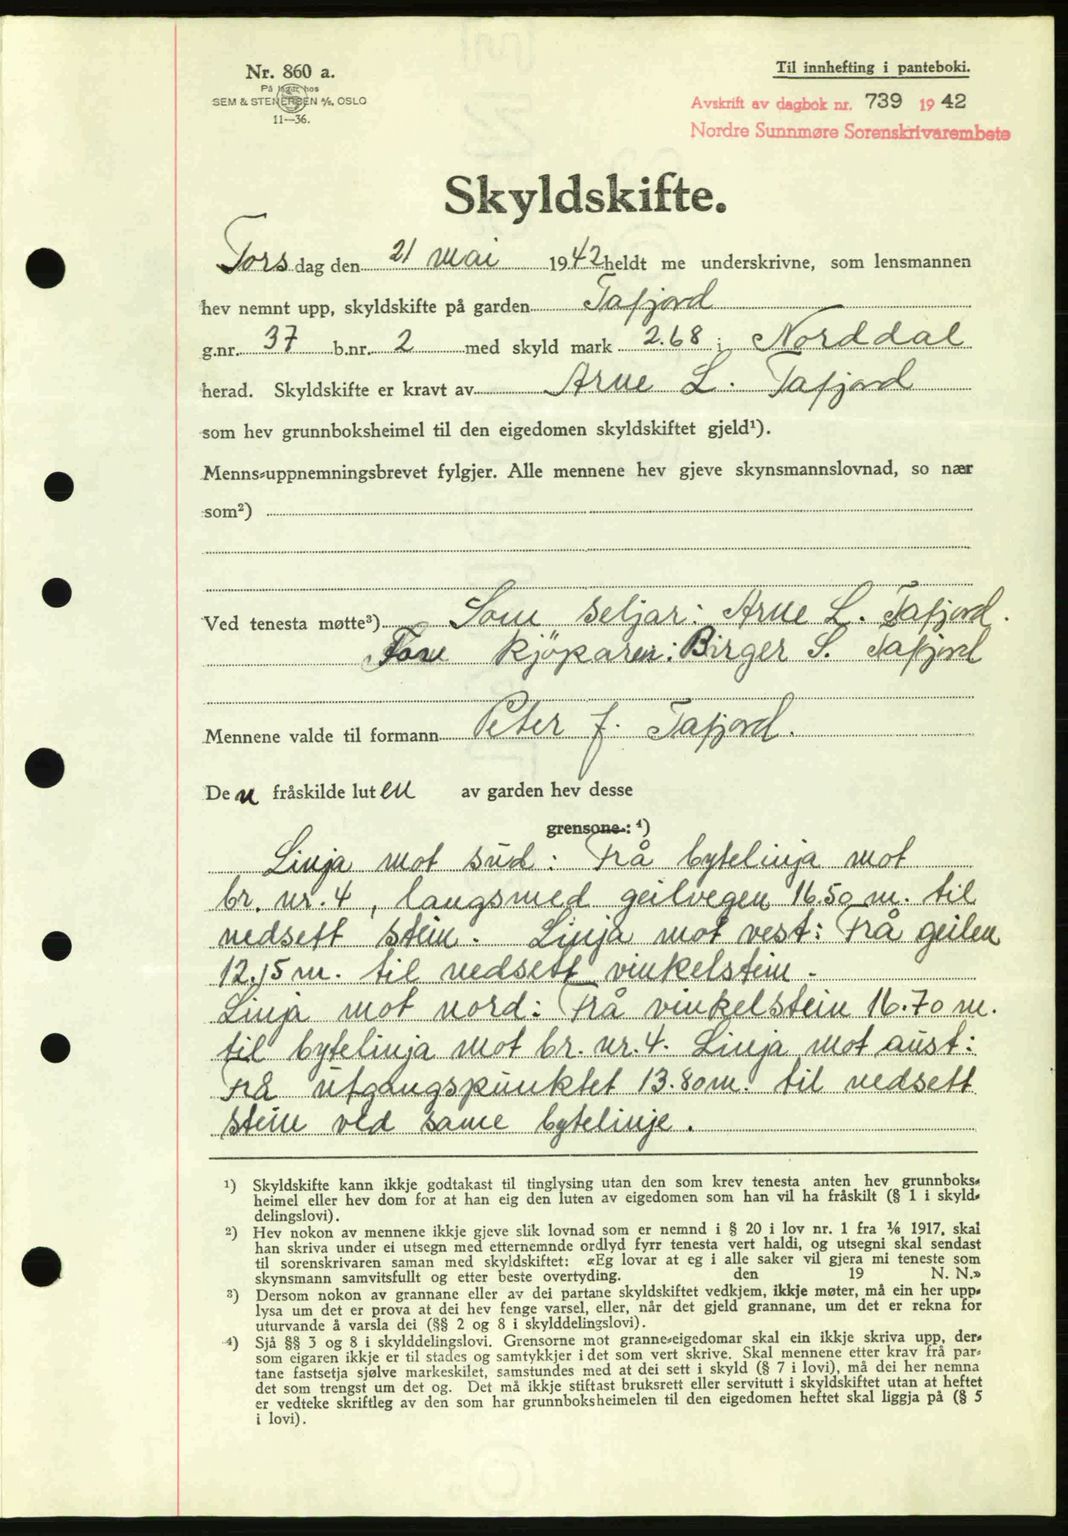 Nr. 860 a.
På lager hos
SEM & STENERSEN A/S, OSLO
11—36.
Til innhefting i panteboki.
Avskrift av dagbok nr. 739 1942
Nordre Sunnmøre Sorenskrivarembete
Skyldskifte.
Tors dag den 21 mai 1942 heldt me underskrivne, som lensmannen
hev nemnt upp, skyldskifte på garden Tafjord
g.nr. 37 b.nr. 2 med skyld mark 2.68 i Norddal
herad. Skyldskifte er kravt av Arne L. Tafjord
som hev grunnboksheimel til den eigedomen skyldskiftet gjeld¹).
Menns-uppnemningsbrevet fylgjer. Alle mennene hev gjeve skynsmannslovnad, so nær
som²)
Ved tenesta møtte³) Som seljar: Arne L. Tafjord.
Kjöparen: Birger S. Tafjord
Mennene valde til formann Peter J. Tafjord.
Den fråskilde luten av garden hev desse
grensone: ⁴)
Linja mot süd: Frå bytelinja mot
br. nr. 4, langsmed geilvegen 16.50 m. til
nedsett stein. Linja mot vest: Frå geilen
12.15 m. til nedsett vinkelstein.
Linja mot nord: Frå vinkelstein 16.70 m.
til bytelinja mot br. nr. 4. Linja mot aust:
Frå utgangspunktet 13.80 m. til nedsett
stein ved same bytelinje.
¹) Skyldskifte kann ikkje godtakast til tinglysing utan den som krev tenesta anten hev grunnboks-
heimel eller hev dom for at han eig den luten av eigedomen som han vil ha fråskilt (§ 1 i skyld-
delingslovi).
²) Hev nokon av mennene ikkje gjeve slik lovnad som er nemnd i § 20 i lov nr. 1 fra 1/6 1917, skal
han skriva under ei utsegn med etternemnde ordlyd fyrr tenesta vert haldi, og utsegni skal sendast
til sorenskrivaren saman med skyldskiftet: «Eg lovar at eg i alle saker vil gjera mi teneste som
skynsmann samvitsfullt og etter beste overtyding. den 19 N. N.»
³) Dersom nokon av grannane eller av dei partane skyldskiftet vedkjem, ikkje møter, må ein her upp-
lysa um det er prova at dei hev fenge varsel, eller, når det gjeld grannane, um det er rekna for
uturvande å varsla dei (§§ 2 og 8 i skylddelingslovi).
⁴) Sjå §§ 3 og 8 i skylddelingslovi. Grensorne mot granne-eigedomar skal ein ikkje skriva upp, der-
som eigaren ikkje er til stades og samtykkjer i det som vert skrive. Skal mennene etter krav frå par-
tane fastsetja sjølve markeskilet, samstundes med at dei sett i skyld (§ 7 i lovi), må dei her nemna
det som trengst um det og. Det må ikkje stiftast bruksrett eller servitutt i skyldskiftet utan at heftet
er vedteke skriftleg av den som har grunnboksheimelen til den eigedomen heftet skal liggja på (§ 5
i lovi).